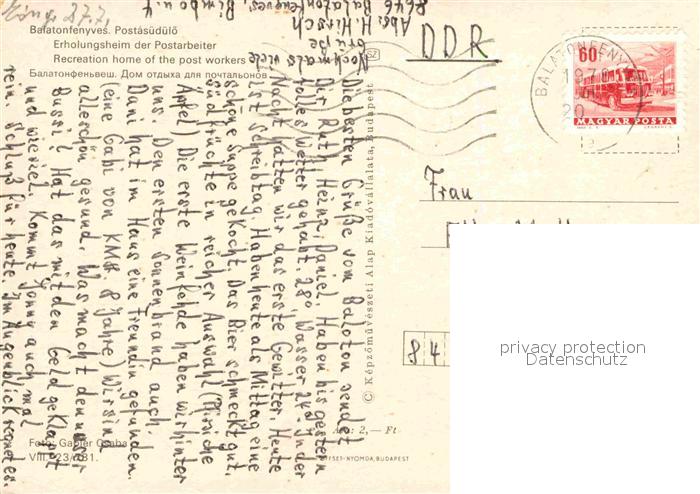 Balatonfenyves. Postásüdülő
Erholungsheim der Postarbeiter
Recreation home of the post workers
Балатонфеньвеш. Дом отдыха для почтальонов
Abs. H. Hirsch
8646 Balatonfenyves, Bimbo u. 4
DDR
BALATONFENYVES
60 f
MAGYAR POSTA
Frau
84
privacy protection
Datenschutz
Die besten Grüße vom Balaton sendet
Dir Ruth, Heinz, Daniel. Haben bis gestern
tolles Wetter gehabt. 28°, Wasser 24°. In der
Nacht hatten wir das erste Gewitter. Heute
ist Schreibtag. Haben heute als Mittag eine
schöne Suppe gekocht. Das Bier schmeckt gut.
Südfrüchte in reicher Auswahl (Pfirsiche
Äpfel) Die erste Weinfehde haben wir hinter
uns. Den ersten Sonnenbrand auch.
Dani hat im Haus eine Freundin gefunden.
(eine Gabi von KMSt. 8 Jahre) Wir sind
allerschön gesund. Was macht denn unser
Bussi? Hat das mit den Geld geklappt
und wieviel. Kommt Jonny auch mal
rein. Schluß für heute. Im Augenblick regnet es.
Nochmals viele
Grüße
© Képzőművészeti Alap Kiadóvállalata, Budapest
Ára: 2,— Ft
OFFSET-NYOMDA, BUDAPEST
Foto: Gabler Csaba